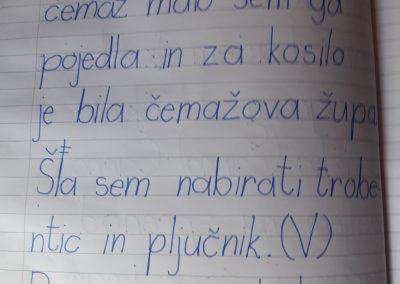 čemaž malo sem ga
pojedla in za kosilo
je bila čemažova župa
Šla sem nabirati trobe
ntic in pljučnik. (V)